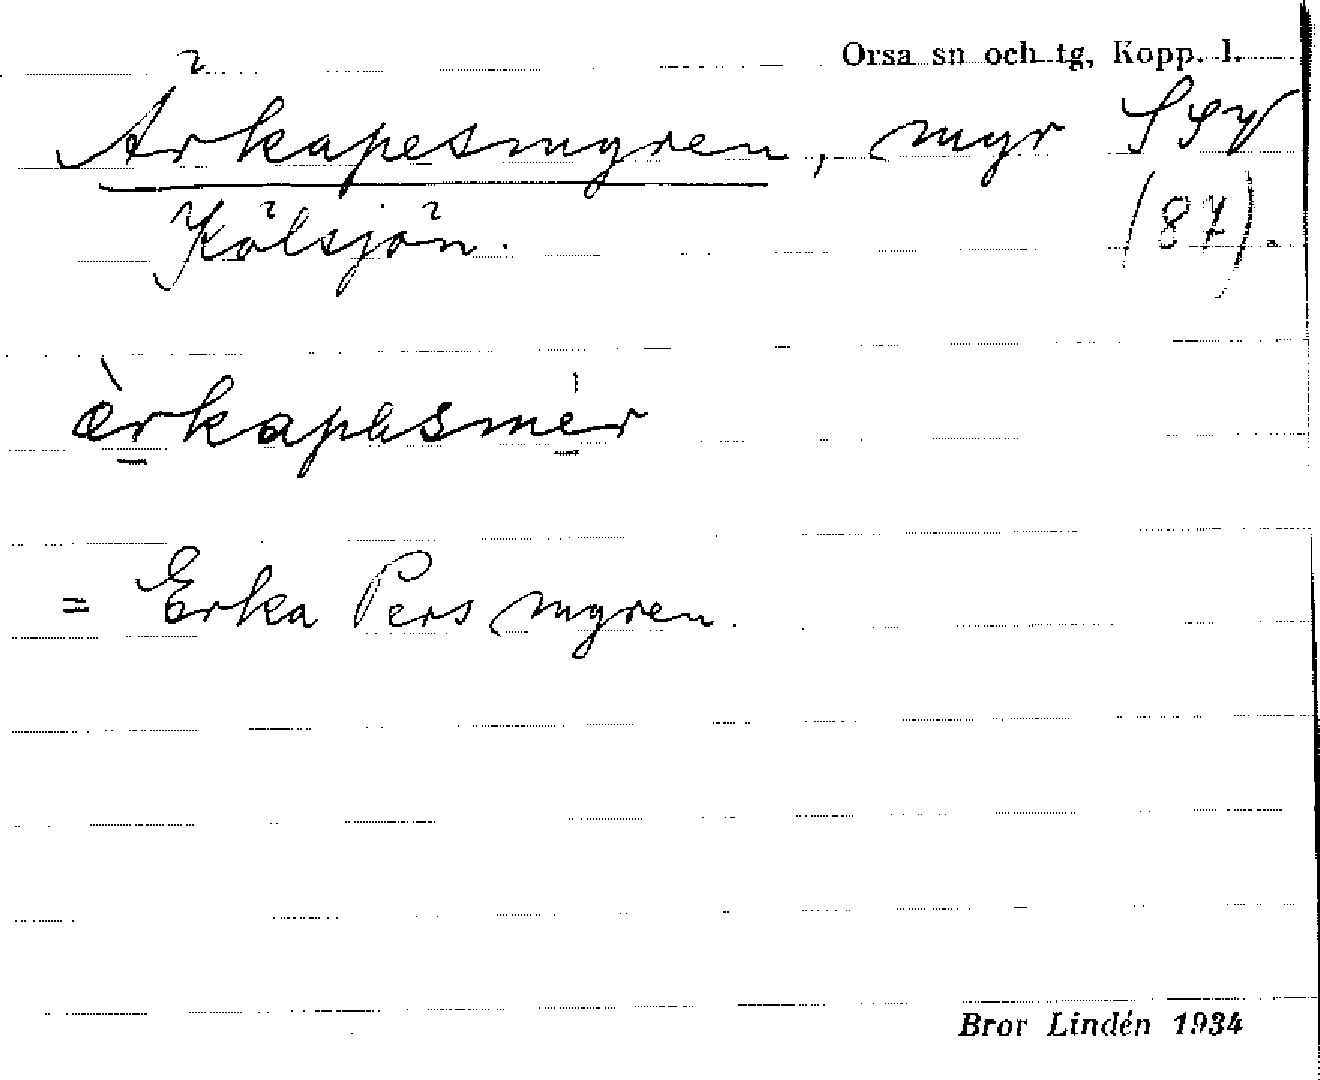 Orsa sn och tg, Kopp. l.
Ärkapesmyren, myr SSV
Kölsjön. (87).
ärkapesmer
= Erka Pers myren.
Bror Lindén 1934